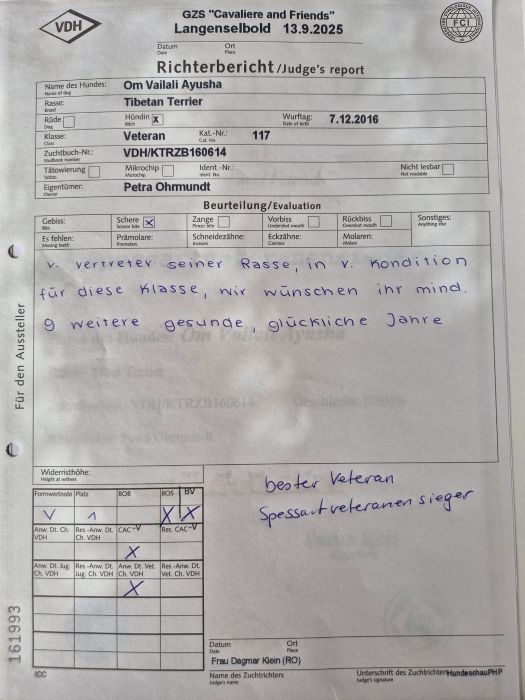 VDH
GZS "Cavaliere and Friends"
Langenselbold 13.9.2025
FCI
Datum Ort
Date Place
Richterbericht/Judge's report
Name des Hundes: Om Vailali Ayusha
Name of dog
Rasse: Tibetan Terrier
Breed
Rüde Hündin x Wurftag: 7.12.2016
Dog Bitch Date of birth
Klasse: Veteran Kat.-Nr.: 117
Class Cat. No.
Zuchtbuch-Nr.: VDH/KTRZB160614
Studbook number
Tätowierung Mikrochip Ident.-Nr.: Nicht lesbar
Tattoo Microchip Ident. No. Not readable
Eigentümer: Petra Ohrmundt
Owner
Beurteilung/Evaluation
Gebiss: Schere X Zange Vorbiss Rückbiss Sonstiges:
Bite Scissor bite Pincer bite Undershot mouth Overshot mouth Anything else
Es fehlen: Prämolare: Schneidezähne: Eckzähne: Molaren:
Missing teeth Premolars Incisors Canines Molars
v. vertreter seiner Rasse, in v. Kondition
für diese Klasse, wir wünschen ihr mind.
9 weitere gesunde, glückliche Jahre
Für den Aussteller
Widerristhöhe:
Height at withers
Formwertnote Platz BOB BOS BV
V 1 X X
Anw. Dt. Ch. VDH Res.-Anw. Dt. Ch. VDH CAC-V Res. CAC-V
X
Anw. Dt. Jug. Ch. VDH Res.-Anw. Dt. Jug. Ch. VDH Anw. Dt. Vet. Ch. VDH Res.-Anw. Dt. Vet. Ch. VDH
X
bester Veteran
Spessartveteranensieger
161993
ICC
Datum Ort
Date Place
Frau Dagmar Klein (RO)
Name des Zuchtrichters Unterschrift des Zuchtrichters HundeschauPHP
Judge's name Judge's signature